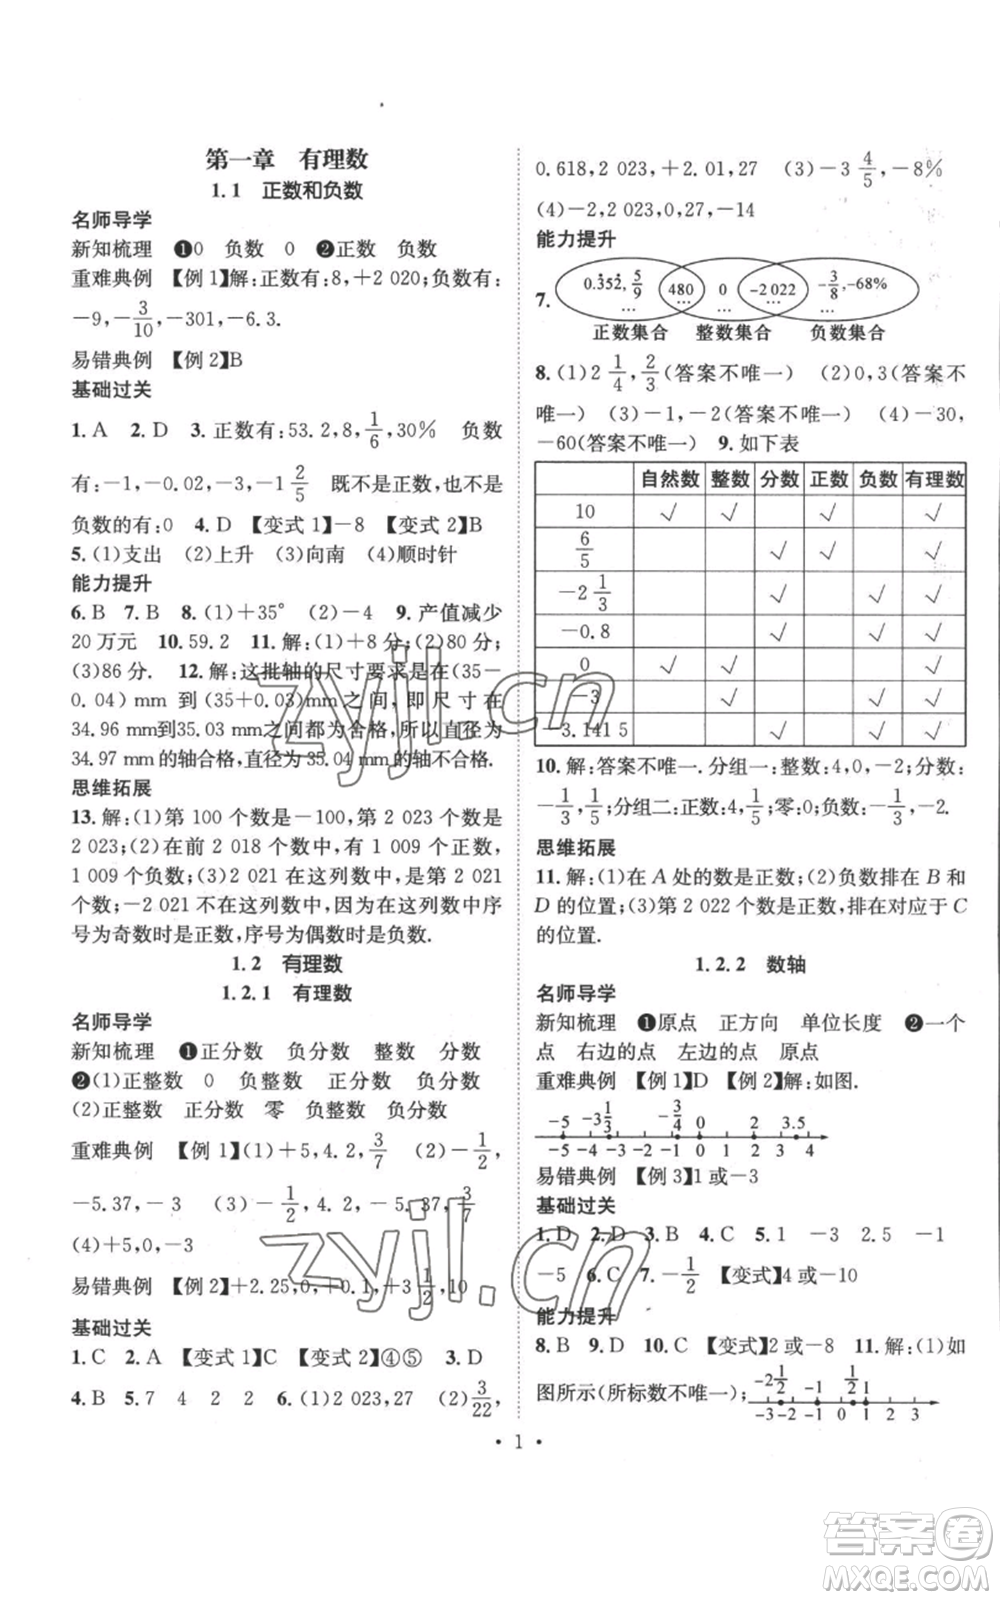 第一章 有理数
1.1 正数和负数
名师导学
新知梳理 ❶0 负数 0 ❷正数 负数
重难典例 【例1】解:正数有:8,+2 020;负数有:
-9,-3/10,-301,-6.3.
易错典例 【例2】B
基础过关
1.A 2.D 3.正数有:53.2,8,1/6,30% 负数
有:-1,-0.02,-3,-1 2/5 既不是正数,也不是
负数的有:0 4.D 【变式1】-8 【变式2】B
5.(1)支出 (2)上升 (3)向南 (4)顺时针
能力提升
6.B 7.B 8.(1)+35° (2)-4 9.产值减少
20万元 10.59.2 11.解:(1)+8分;(2)80分;
(3)86分. 12.解:这批轴的尺寸要求是在(35-
0.04) mm 到(35+0.03)mm之间,即尺寸在
34.96 mm到35.03 mm之间都为合格,所以直径为
34.97 mm的轴合格,直径为35.04 mm的轴不合格.
思维拓展
13.解:(1)第100个数是-100,第2 023个数是
2 023;(2)在前2 018个数中,有1 009个正数,
1 009个负数;(3)2 021在这列数中,是第2 021
个数;-2 021不在这列数中,因为在这列数中序
号为奇数时是正数,序号为偶数时是负数.
1.2 有理数
1.2.1 有理数
名师导学
新知梳理 ❶正分数 负分数 整数 分数
❷(1)正整数 0 负整数 正分数 负分数
(2)正整数 正分数 零 负整数 负分数
重难典例 【例1】(1)+5,4.2,3/7 (2)-1/2,
-5.37,-3 (3)-1/2,4.2,-5.37,3/7
(4)+5,0,-3
易错典例 【例2】+2.25,0,+0.1,+3 1/2,10
基础过关
1.C 2.A 【变式1】C 【变式2】④⑤ 3.D
4.B 5.7 4 2 2 6.(1)2 023,27 (2)3/22,
0.618,2 023,+2.01,27 (3)-3 4/5,-8%
(4)-2,2 023,0,27,-14
能力提升
7. 0.3̇52̇,5/9 … 480 … 0 … -2 022 … -3/8,-68% …
正数集合 整数集合 负数集合
8.(1)2 1/4,2/3(答案不唯一) (2)0,3(答案不
唯一) (3)-1,-2(答案不唯一) (4)-30,
-60(答案不唯一) 9.如下表
自然数 整数 分数 正数 负数 有理数
10 √ √ √ √
6/5 √ √ √
-2 1/3 √ √ √
-0.8 √ √ √
0 √ √ √
-3 √ √ √
-3.141 5 √ √ √
10.解:答案不唯一.分组一:整数:4,0,-2;分数:
-1/3,1/5;分组二:正数:4,1/5;零:0;负数:-1/3,-2.
思维拓展
11.解:(1)在A处的数是正数;(2)负数排在B和
D的位置;(3)第2 022个数是正数,排在对应于C
的位置.
1.2.2 数轴
名师导学
新知梳理 ❶原点 正方向 单位长度 ❷一个
点 右边的点 左边的点 原点
重难典例 【例1】D 【例2】解:如图.
-5 -3 1/3 -3/4 0 2 3.5
-5 -4 -3 -2 -1 0 1 2 3 4
易错典例 【例3】1或-3
基础过关
1.D 2.D 3.B 4.C 5.1 -3 2.5 -1
-5 6.C 7.-1/2 【变式】4或-10
能力提升
8.B 9.D 10.C 【变式】2或-8 11.解:(1)如
图所示(所标数不唯一); -2 1/2 -1 1/2 1
-3 -2 -1 0 1 2 3
• 1 •
zyjl.cn
zyjl.cn
答案圈
MXQE.COM